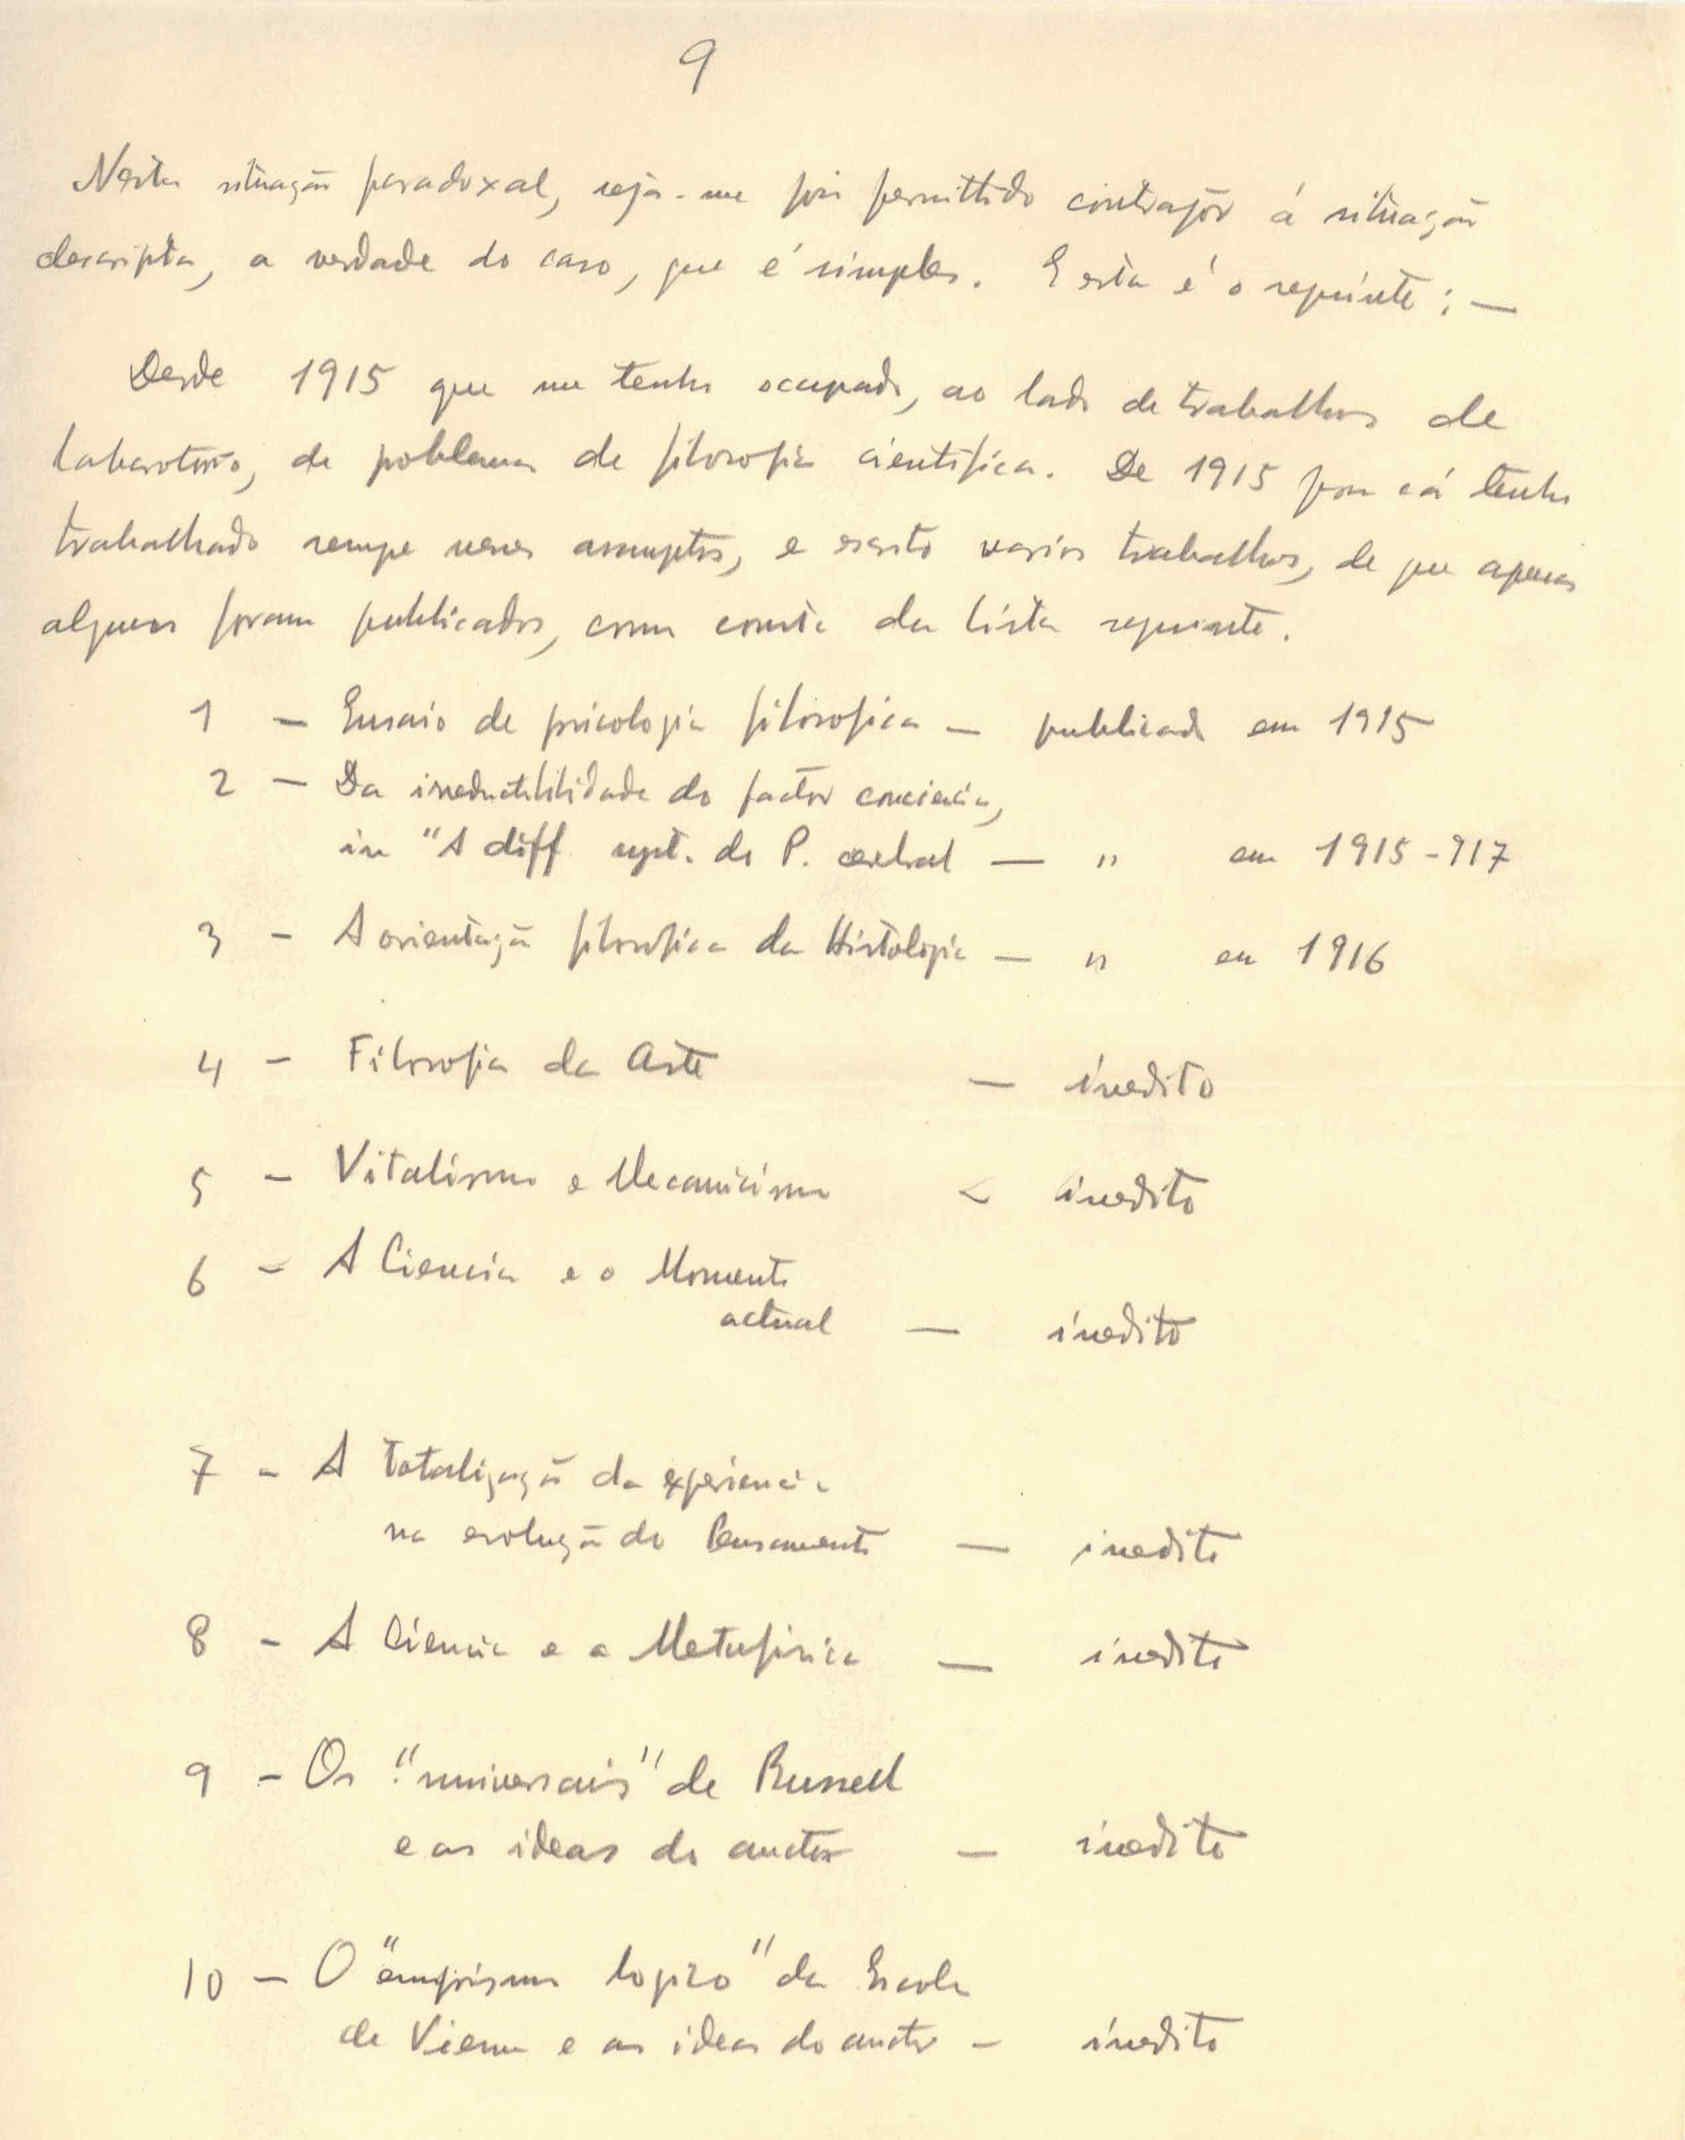 9
Nesta situação paradoxal, seja-me pois permittido contrapôr á situação
descripta, a verdade do caso, que é simples. E esta é o seguinte: —
Desde 1915 que me tenho occupado, ao lado de trabalhos de
laboratorio, de problemas de filosofia cientifica. De 1915 para cá tenho
trabalhado sempre nesses assumptos, e escrito varios trabalhos, de que apenas
alguns foram publicados, como consta da lista seguinte.
1 — Ensaio de psicologia filosofica — publicado em 1915
2 — Da irreductibilidade do factor conciencia,
in "A diff. syst. do P. cerebral — " em 1915-917
3 - A orientação filosofica da Histologia — " em 1916
4 - Filosofia da Arte — inedito
5 - Vitalismo e Mecanicismo - inedito
6 - A Ciencia e o Momento
actual — inedito
7 - A totalização da experiencia
na evolução do Pensamento — inedito
8 - A Ciencia e a Metafisica — inedito
9 - Os "universais" de Russell
e as ideas do auctor — inedito
10 - O "empirismo logico" da Escola
de Viena e as ideas do auctor - inedito